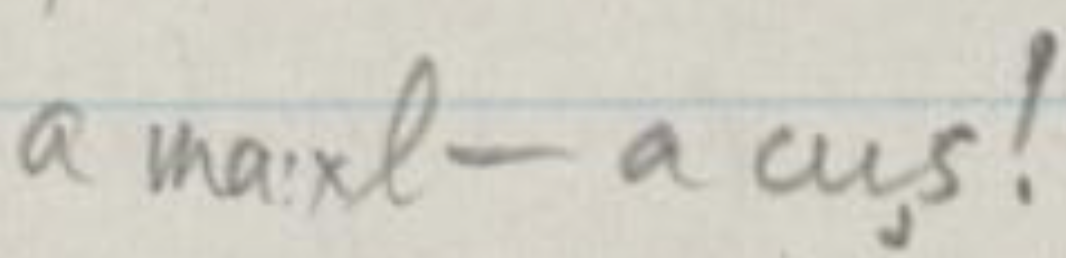 a ma:xl — a cu̡s!